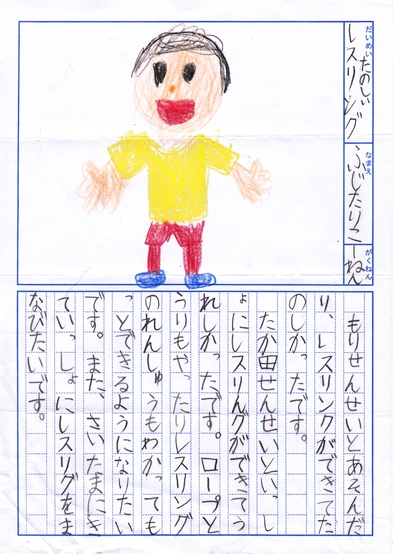 だいめい
たのしい
レスリング
なまえ
ふじたりこ
がくねん
一ねん
もりせんせいとあそんだ
り、レスリングができてた
のしかったです。
たか田せんせいといっし
ょにレスリングができてう
れしかったです。ロープと
うりもやったりレスリング
のれんしゅうもわかっても
っとできるようになりたい
です。また、さいたまにき
ていっしょにレスリグをま
なびたいです。